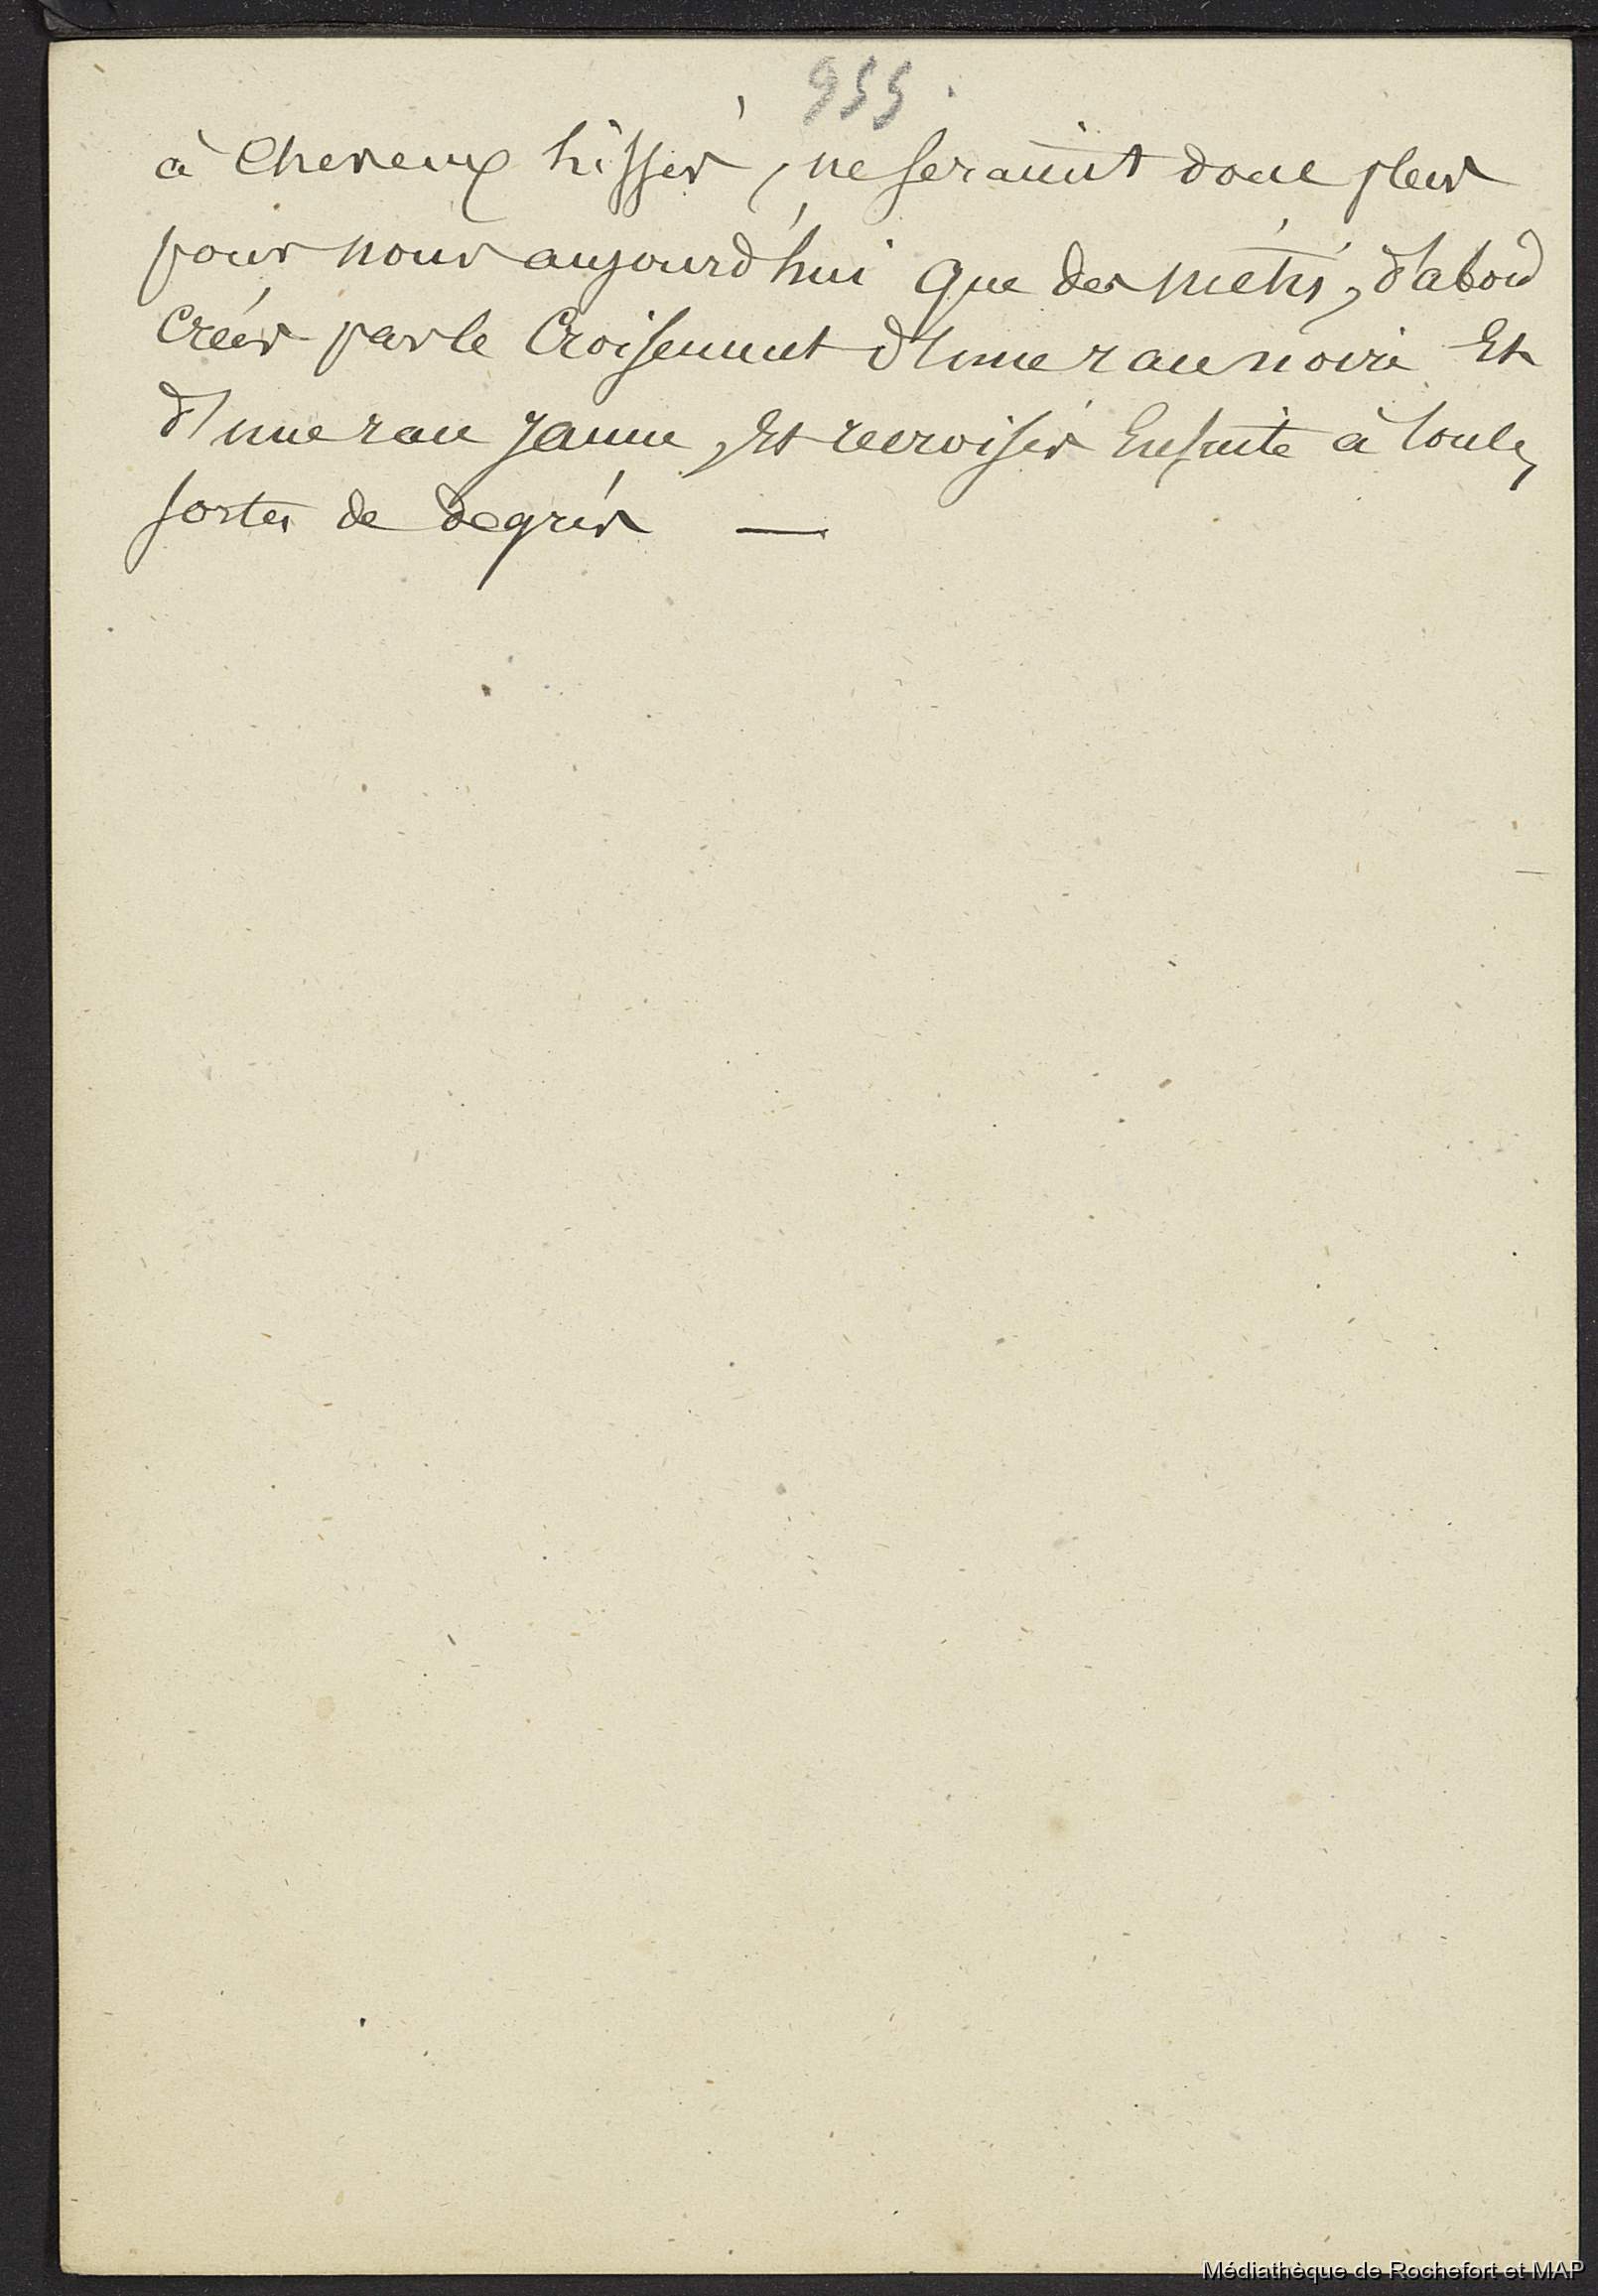 955.
à Cheveux lisses, ne seraient donc plus
pour nous aujourd'hui que des métis, d'abord
Créés par le Croisement d'une race noire Et
d'une race Jaune, Et recroisés Ensuite à toutes
sortes de degrés —
Médiathèque de Rochefort et MAP